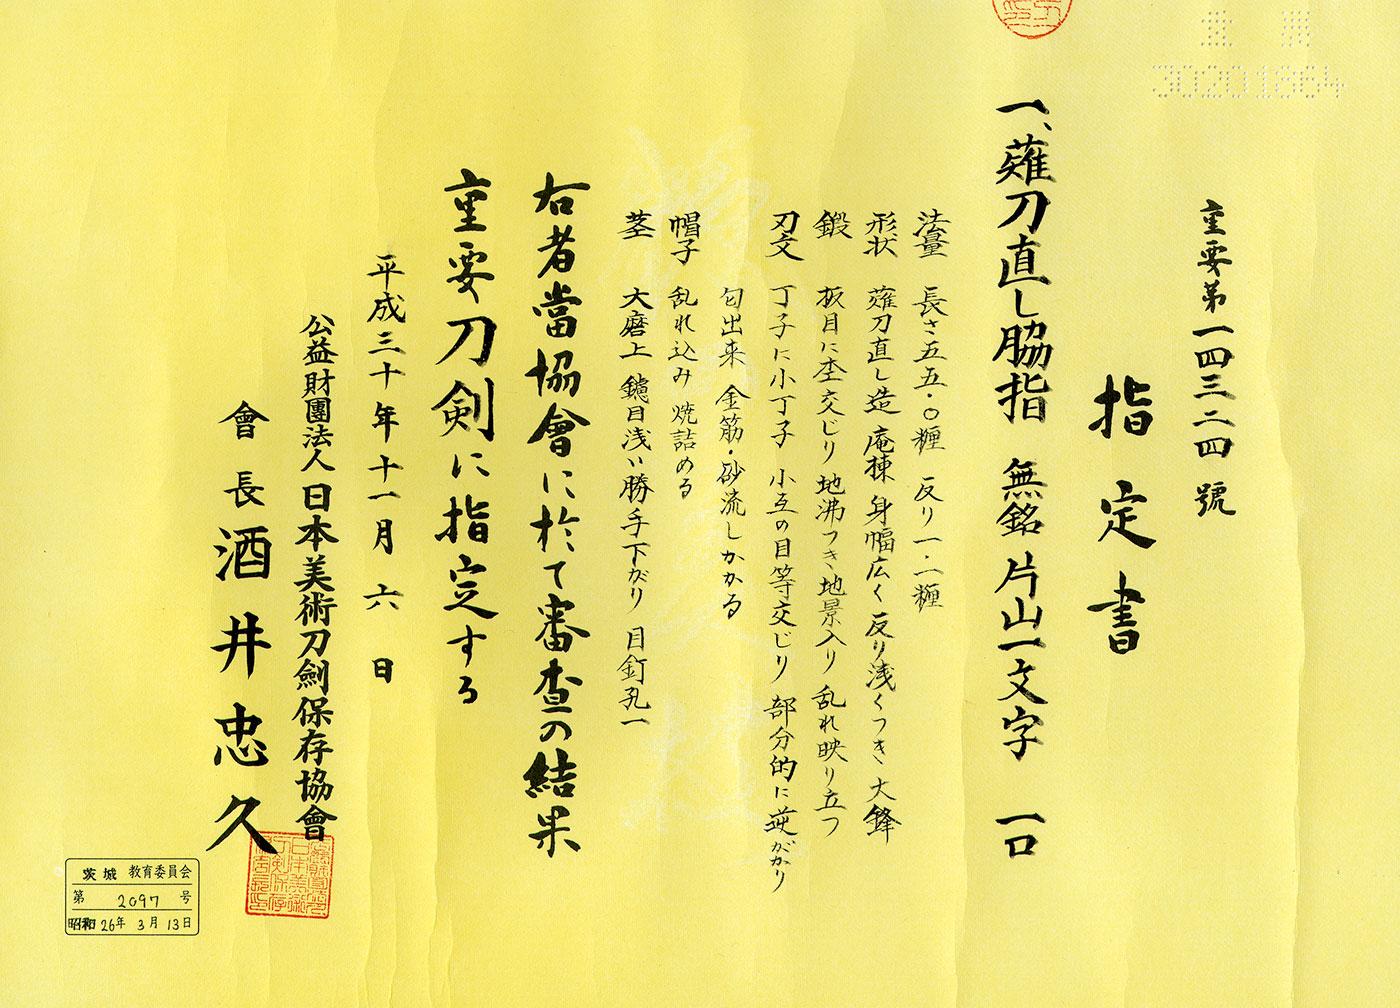 重要
30201664
重要第一四三二四號
指定書
一、薙刀直し脇指 無銘 片山一文字 一口
法量 長さ五五・〇糎 反り一・一糎
形状 薙刀直し造 庵棟 身幅広く 反り浅くつき 大鋒
鍛 板目に杢交じり 地沸つき 地景入り 乱れ映り立つ
刃文 丁子に小丁子 小互の目等交じり 部分的に逆がかり
匂出来 金筋・砂流しかかる
帽子 乱れ込み 焼詰める
茎 大磨上 鑢目浅い勝手下がり 目釘孔一
右者當協會に於て審査の結果
重要刀剣に指定する
平成三十年十一月六日
公益財團法人日本美術刀劍保存協會
會長 酒井忠久
茨城 教育委員会
第 2097 号
昭和 26年 3月 13日